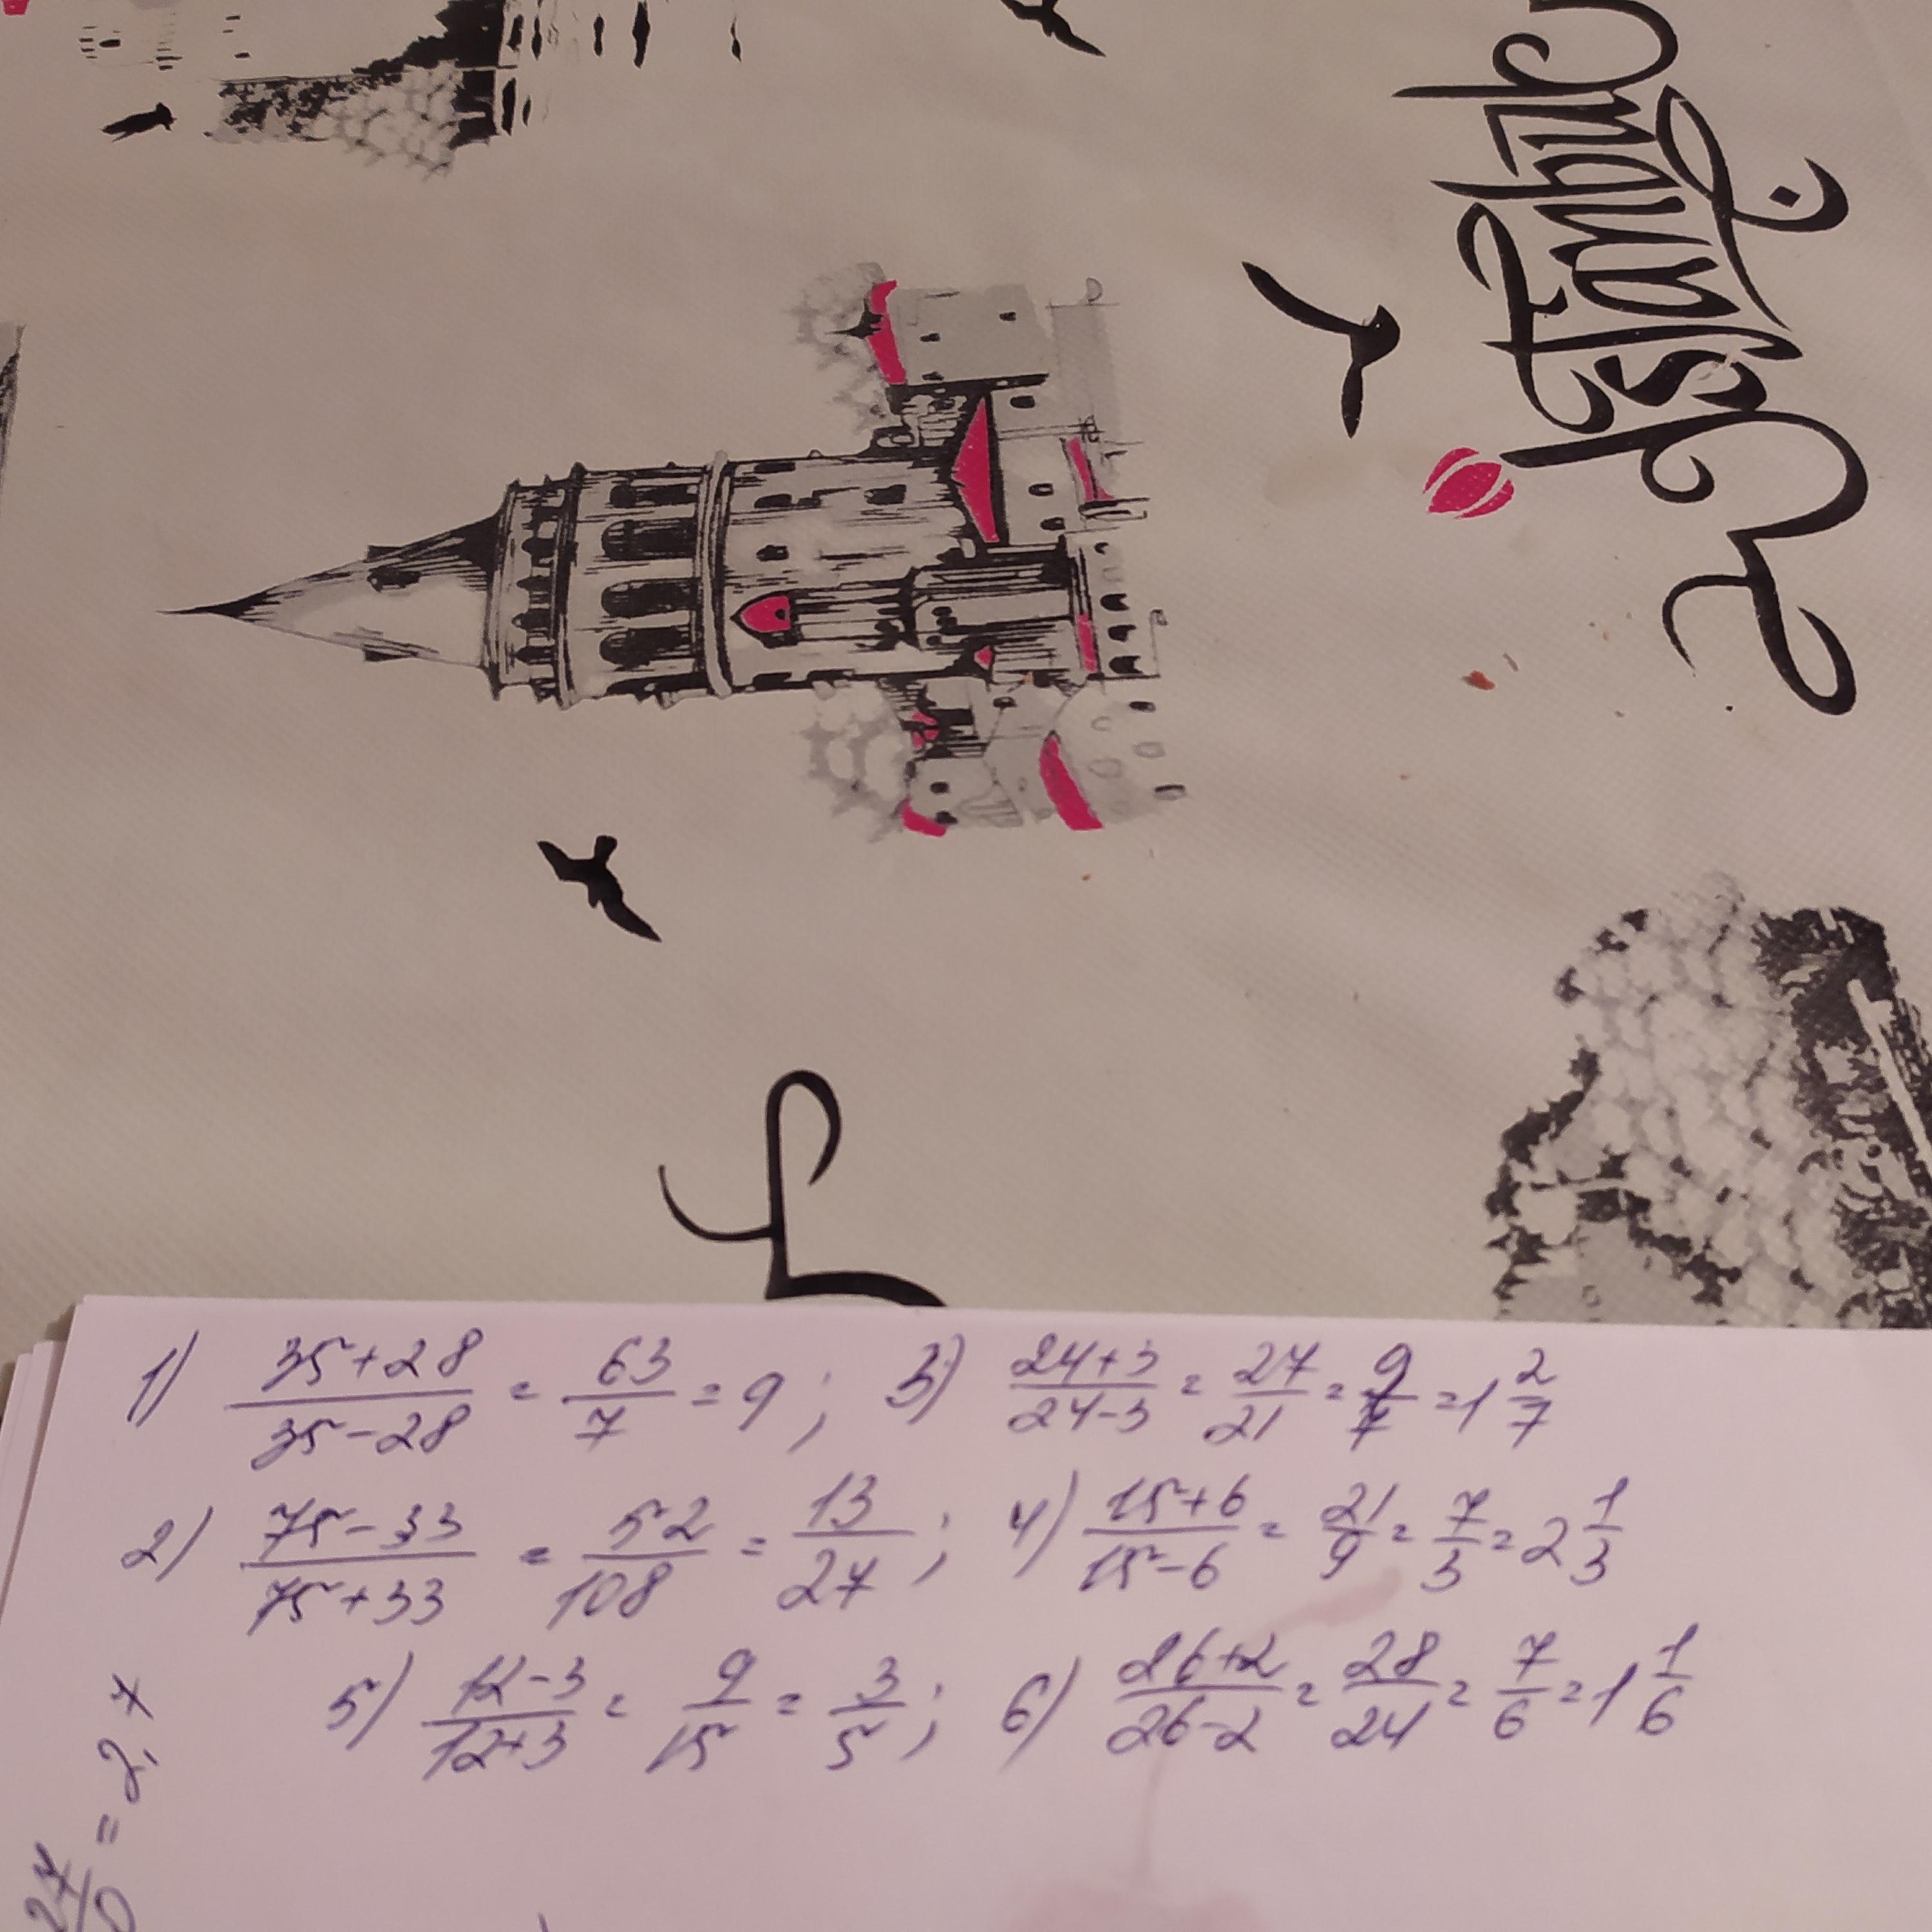 Istanbul
1) (35+28)/(35-28) = 63/7 = 9; 3) (24+3)/(24-3) = 27/21 = 9/7 = 1 2/7
2) (75-33)/(75+33) = 52/108 = 13/27; 4) (15+6)/(15-6) = 21/9 = 7/3 = 2 1/3
5) (12-3)/(12+3) = 9/15 = 3/5; 6) (26+2)/(26-2) = 28/24 = 7/6 = 1 1/6
= 2,7